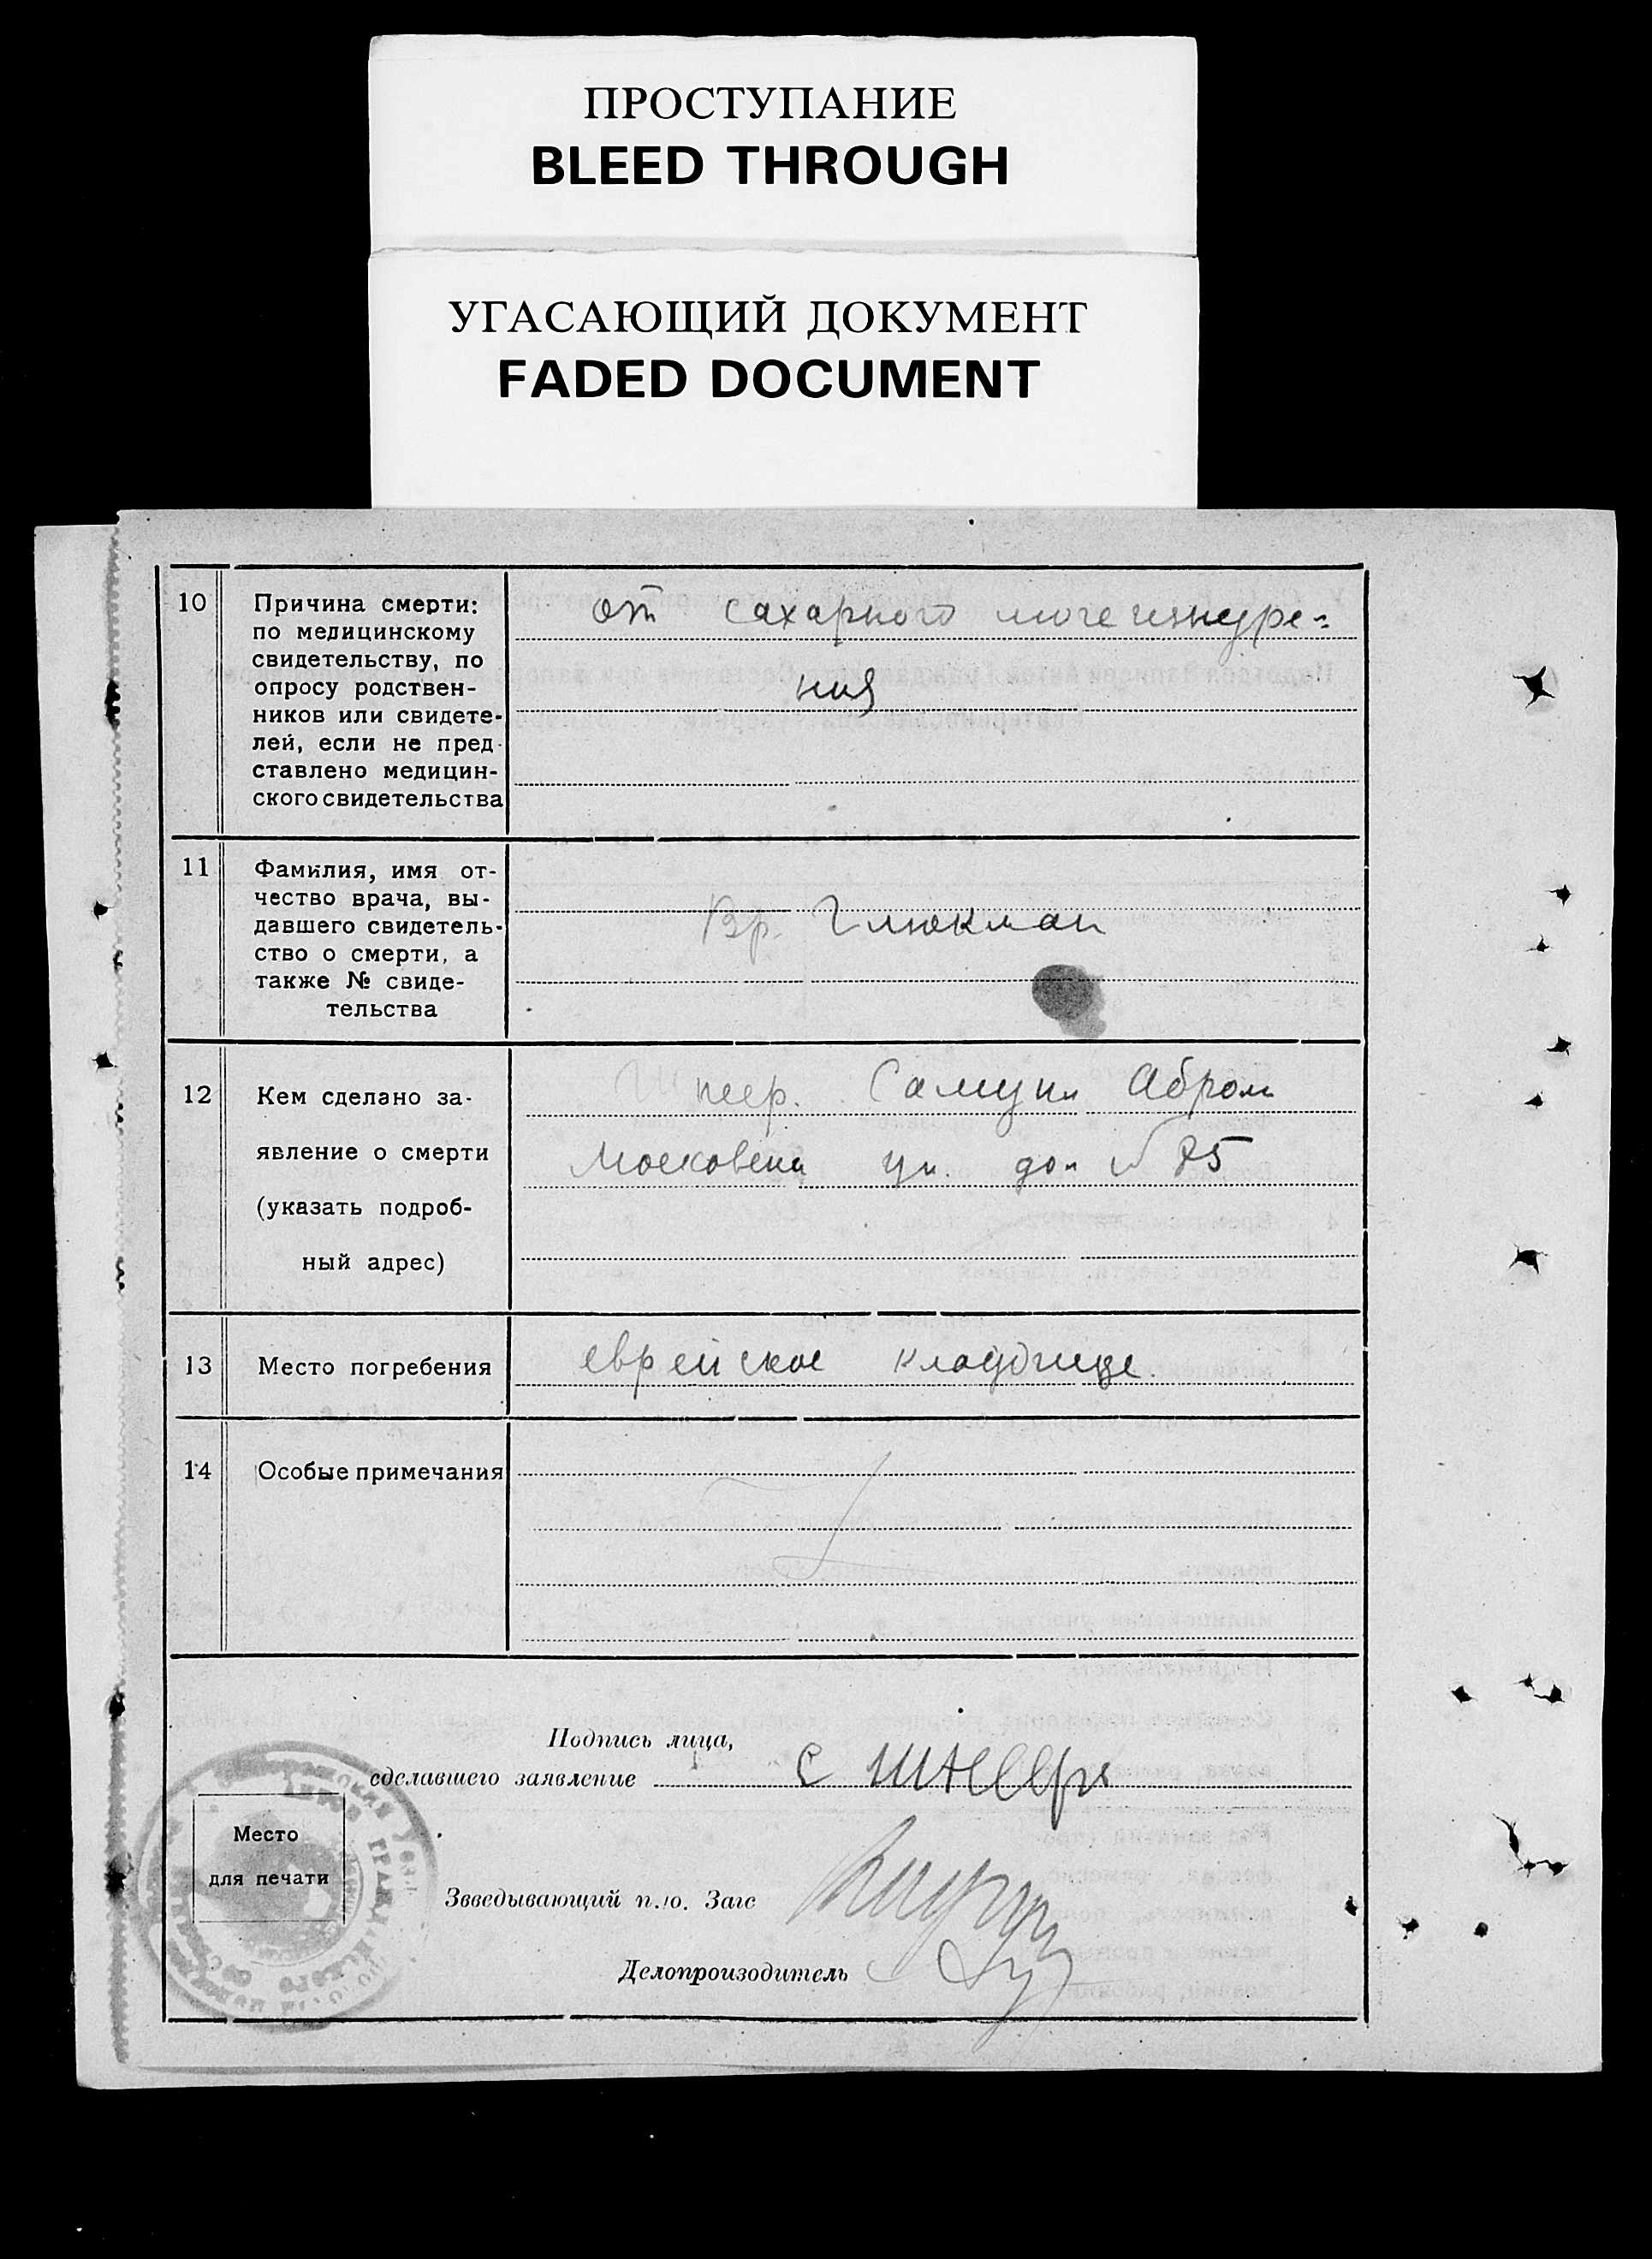 ПРОСТУПАНИЕ
BLEED THROUGH
УГАСАЮЩИЙ ДОКУМЕНТ
FADED DOCUMENT
10
Причина смерти:
по медицинскому
свидетельству, по
опросу родствен-
ников или свидете-
лей, если не пред-
ставлено медицин-
ского свидетельства
от сахарного мочеизнуре-
ния
11
Фамилия, имя от-
чество врача, вы-
давшего свидетель-
ство о смерти, а
также № свиде-
тельства
Вр. Глюкман
12
Кем сделано за-
явление о смерти
(указать подроб-
ный адрес)
Шпеер. Самуил Абром
Московская ул. дом №
13
Место погребения
еврейское кладбище.
14
Особые примечания
Подпись лица,
сделавшего заявление
С
Место
для печати
Звведывающий п.ю. Загс
Делопроизводитель